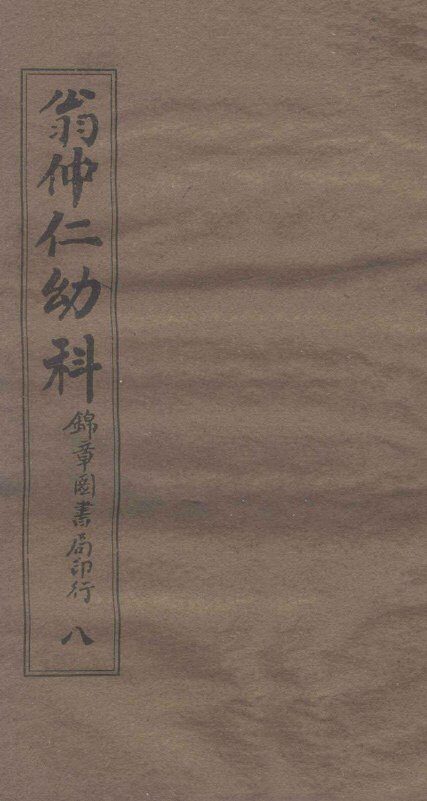 翁仲仁幼科
錦章圖書局印行
八